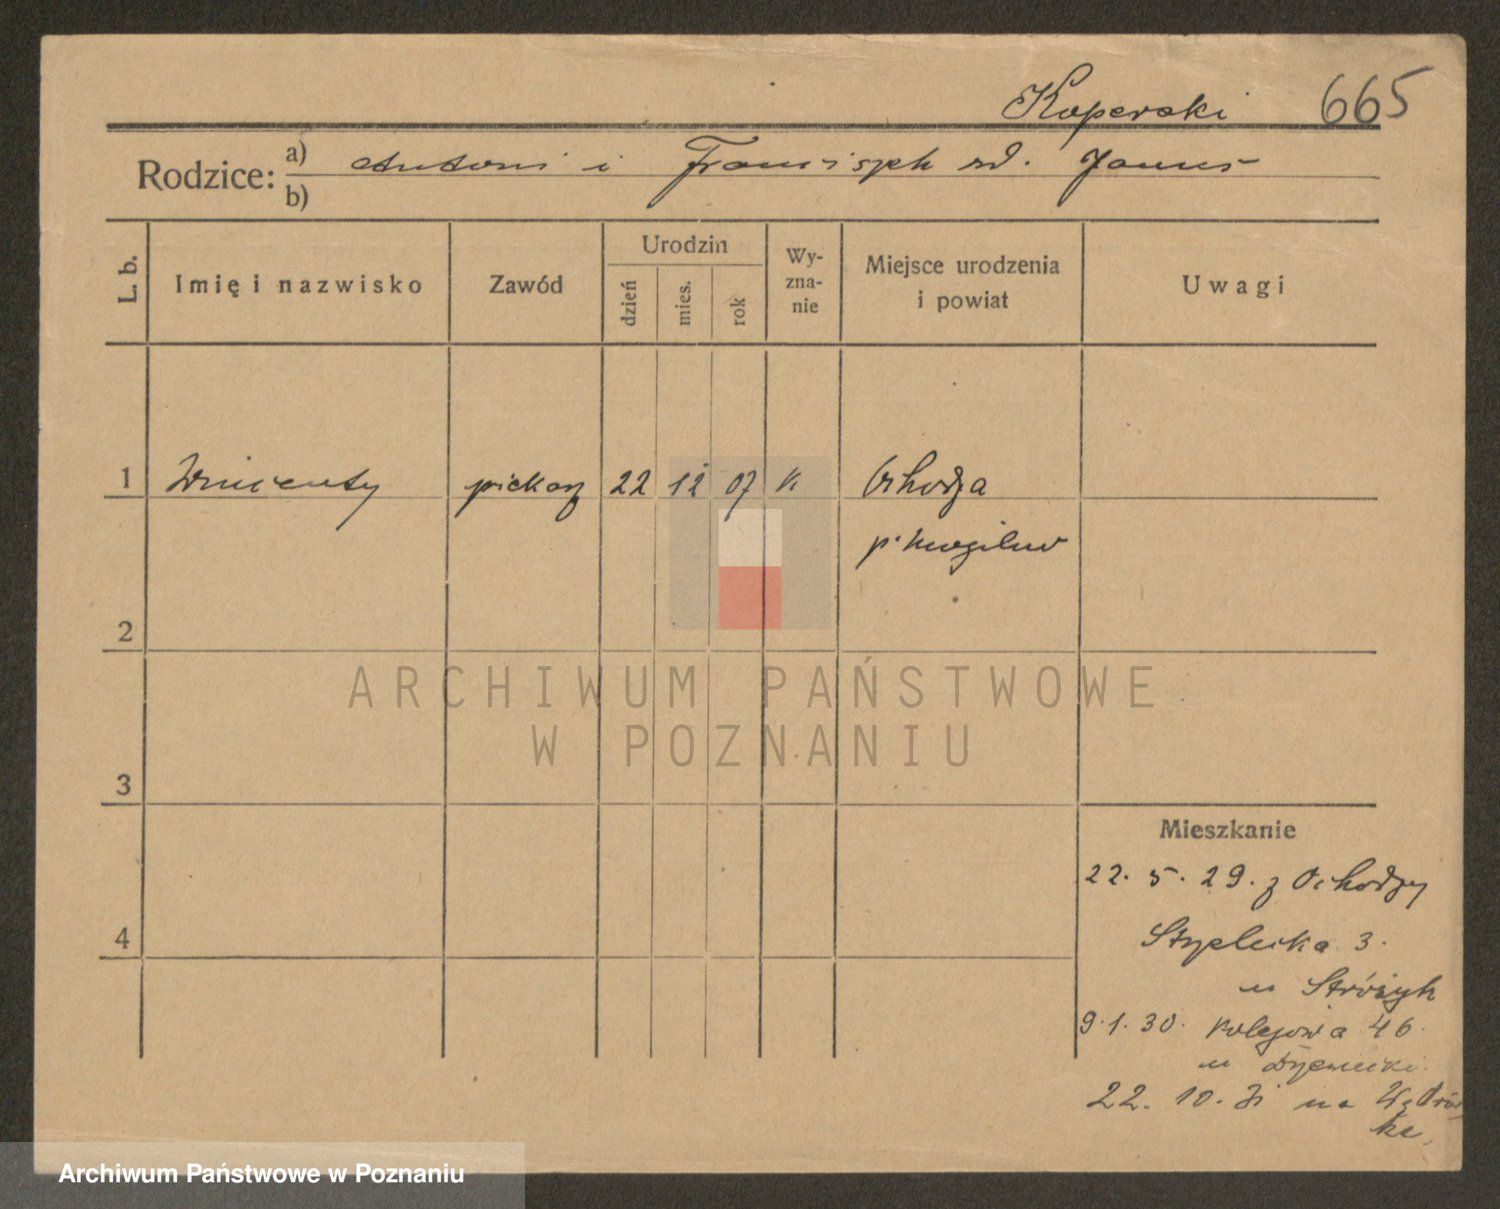 Koperski 665
Rodzice: a) Antoni i Franciszek zd. Janus
b)
L. b.
Imię i nazwisko
Zawód
Urodzin
dzień
mies.
rok
Wy-
zna-
nie
Miejsce urodzenia
i powiat
Uwagi
1 Wincenty piekarz 22 12 07 k Ochodza
p. Mogilno
2
3
4
Mieszkanie
22. 5. 29. z Ochodzy
Strzelecka 3.
u Stróżyk
9.1.30. Kolejowa 46
u
22. 10. 31 na Wędrów
kę.
ARCHIWUM PAŃSTWOWE
W POZNANIU
Archiwum Państwowe w Poznaniu